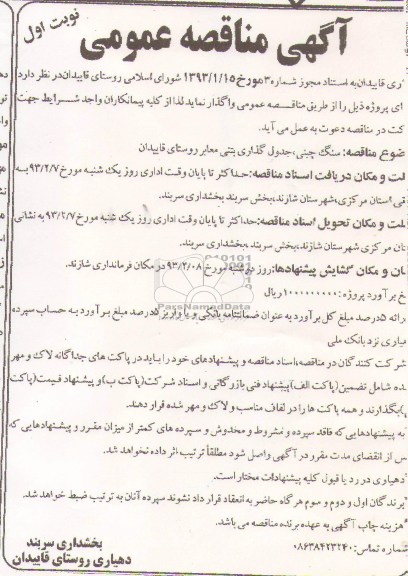 نوبت اول
آگهی مناقصه عمومی
ری قاییدان به استناد مجوز شماره ۳ مورخ ۱۳۹۳/۱/۱۵ شورای اسلامی روستای قاییدان در نظر دارد
ای پروژه ذیل را از طریق مناقصه عمومی واگذار نماید لذا از کلیه پیمانکاران واجد شرایط جهت
کت در مناقصه دعوت به عمل می آید.
ضوع مناقصه: سنگ چینی، جدول گذاری بتنی معابر روستای قاییدان
لت و مکان دریافت اسناد مناقصه: حداکثر تا پایان وقت اداری روز یک شنبه مورخ ۹۳/۲/۷ به
قی استان مرکزی، شهرستان شازند، بخش سربند بخشداری سربند.
لت و مکان تحویل اسناد مناقصه: حداکثر تا پایان وقت اداری روز یک شنبه مورخ ۹۳/۲/۷ به نشانی
تان مرکزی شهرستان شازند، بخش سربند، بخشداری سربند.
ان و مکان گشایش پیشنهادها: روز دوشنبه مورخ ۹۳/۲/۰۸ در مکان فرمانداری شازند.
خ برآورد پروژه: ۱۰۰۰۰۰۰۰۰۰ ریال
رائه ۵درصد مبلغ کل برآورد به عنوان ضمانتنامه بانکی و یا واریز ۵درصد مبلغ برآورد به حساب سپرده
یاری نزد بانک ملی
شرکت کنندگان در مناقصه، اسناد مناقصه و پیشنهادهای خود را باید در پاکت های جداگانه لاک و مهر
ده شامل تضمین(پاکت الف)پیشنهاد فنی بازرگانی و اسناد شرکت(پاکت ب)و پیشنهاد قیمت(پاکت
)بگذارند و همه پاکت ها را در لفاف مناسب و لاک و مهر شده قرار دهند.
به پیشنهادهایی که فاقد سپرده و مشروط و مخدوش و سپرده های کمتر از میزان مقرر و پیشنهادهایی که
س از انقضای مدت مقرر در آگهی واصل شود مطلقاً ترتیب اثر داده نخواهد شد.
دهیاری در رد یا قبول کلیه پیشنهادات مختار است.
برندگان اول و دوم و سوم هر گاه حاضر به انعقاد قرار داد نشوند سپرده آنان به ترتیب ضبط خواهد شد.
هزینه چاپ آگهی به عهده برنده مناقصه می باشد.
شماره تماس: ۰۸۶۳۸۴۲۳۲۴۰
بخشداری سربند
دهیاری روستای قاییدان